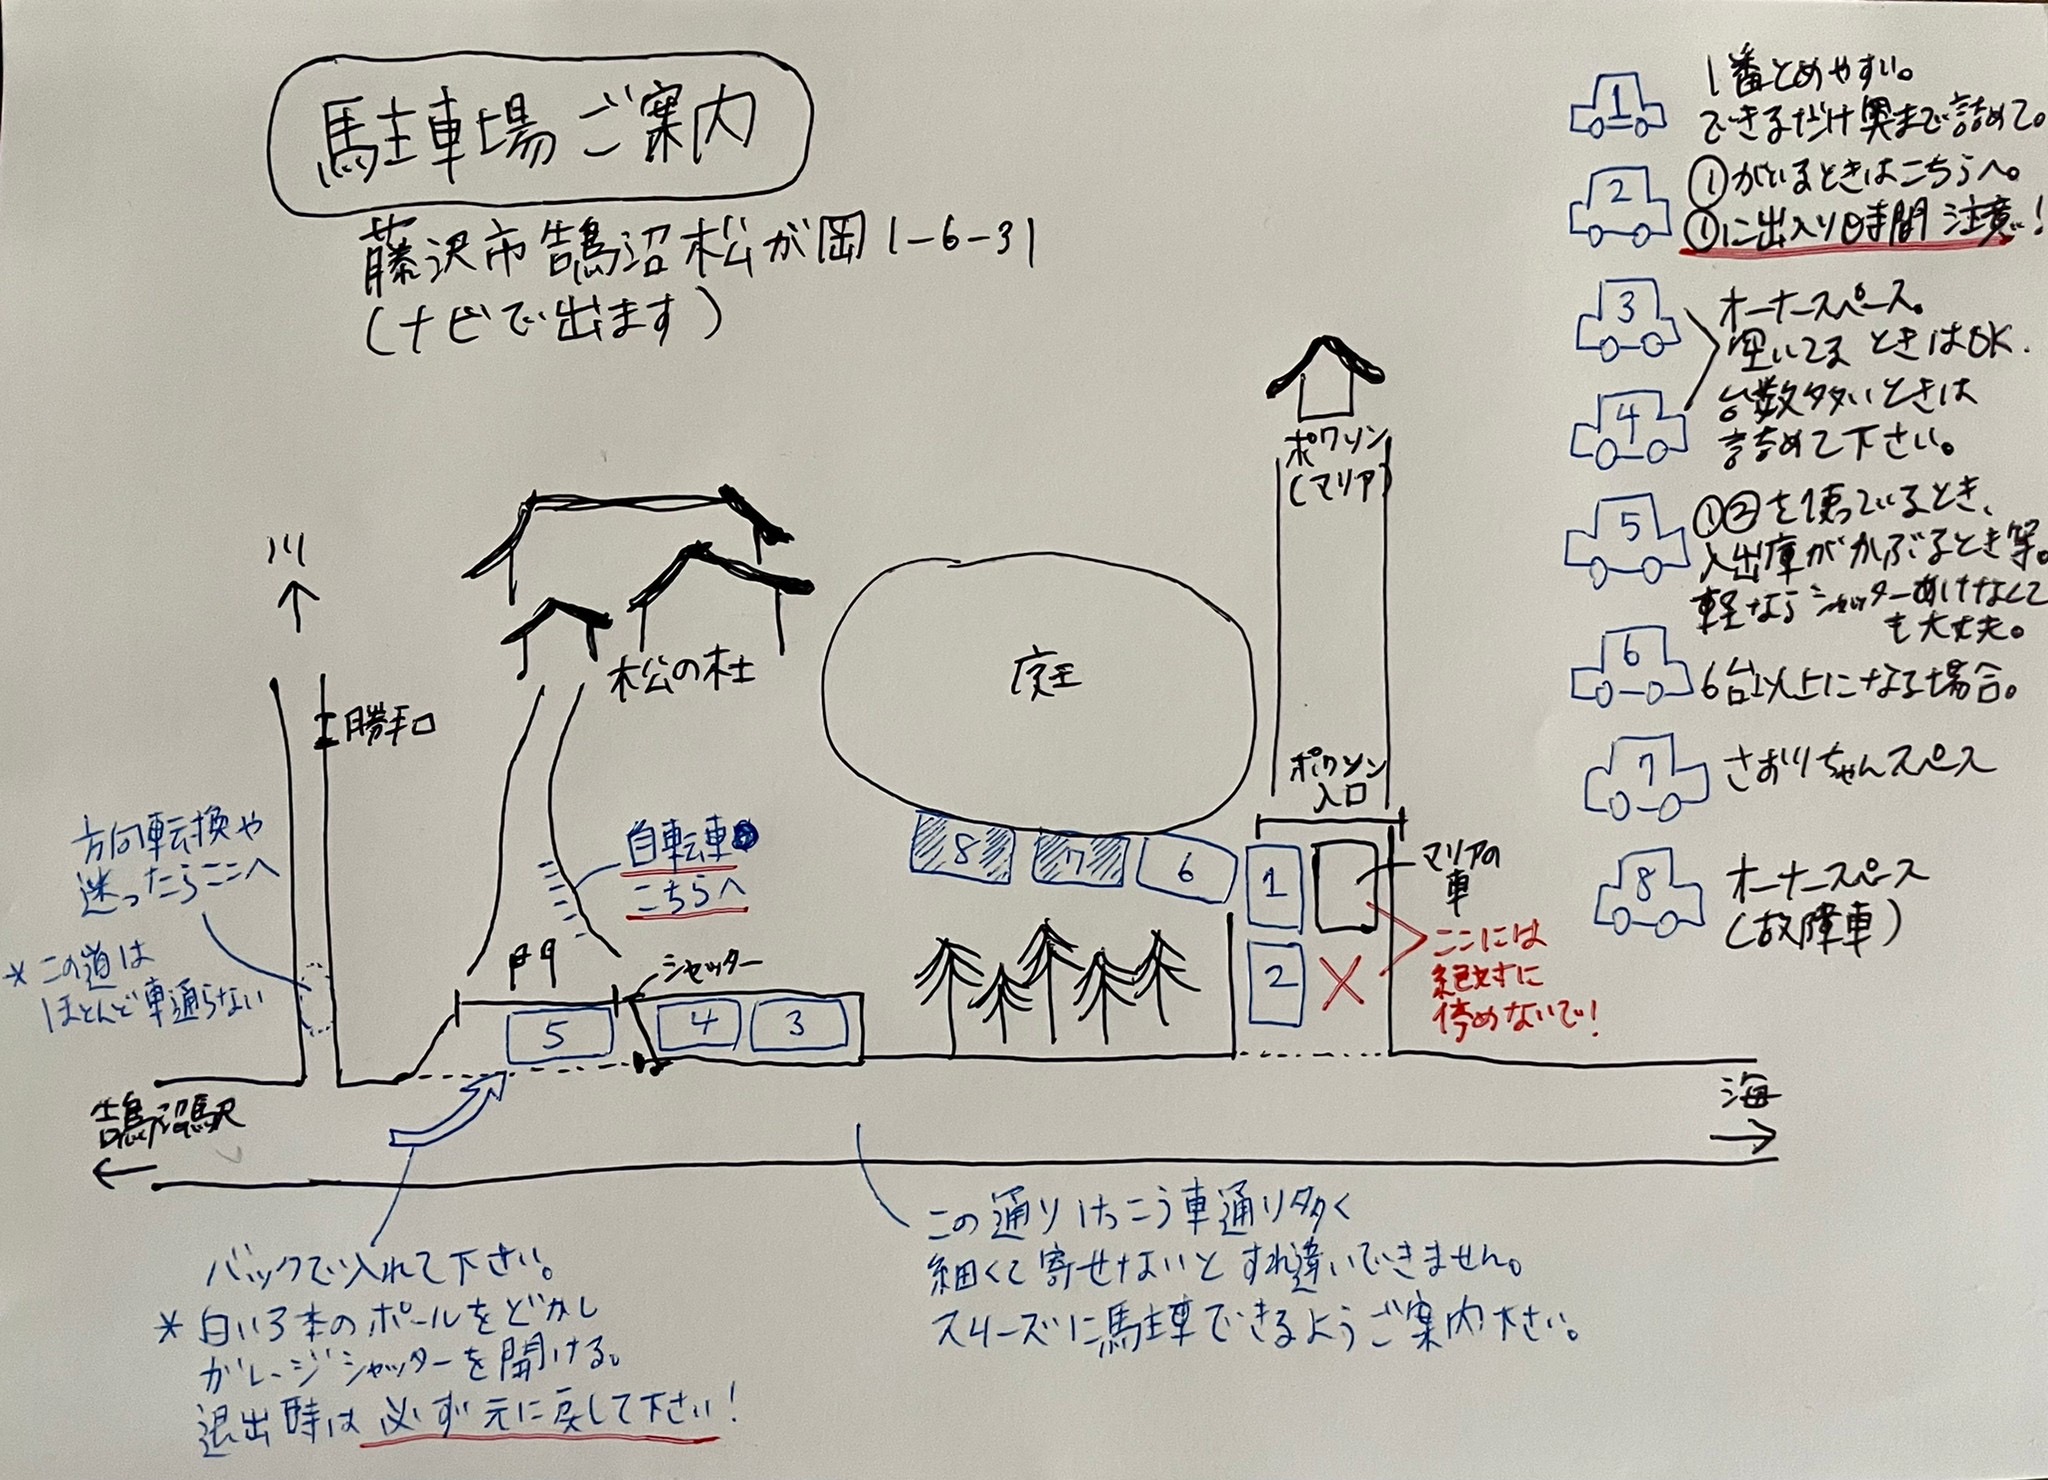 駐車場ご案内
藤沢市鵠沼松が岡1-6-31
(ナビで出ます)
1
1番とめやすい。
できるだけ奥まで詰めて。
2
①がいるときはこちらへ。
①に出入り時間注意!
3
オーナースペース。
空いてるときはOK.
4
台数多いときは
詰めて下さい。
5
①②を使っているとき、
入出庫がかぶるとき等。
軽ならシャッターあけなくて
も大丈夫。
6
6台以上になる場合。
7
さおりちゃんスペース
8
オーナースペース
(故障車)
川
勝手口
松の杜
庭
ポワソン
(マリア)
ポワソン
入口
方向転換や
迷ったらここへ
*この道は
ほとんど車通らない
自転車
こちらへ
門
シャッター
5
4
3
8
7
6
1
2
マリアの
車
ここには
絶対に
停めないで!
鵠沼駅
海
バックで入れて下さい。
*白い3本のポールをどかし
ガレージシャッターを開ける。
退出時は必ず元に戻して下さい!
この通りけっこう車通り多く
細くて寄せないとすれ違いできません。
スムーズに駐車できるようご案内下さい。